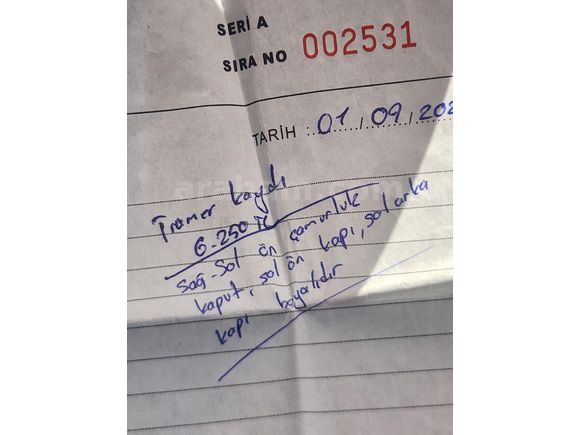 SERİ A
SIRA NO 002531
TARİH : 01 / 09 / 202
Tramer kaydı
6.250 TL
Sağ-Sol ön çamurluk
kaput, sol ön kapı, sol arka
kapı boyalıdır